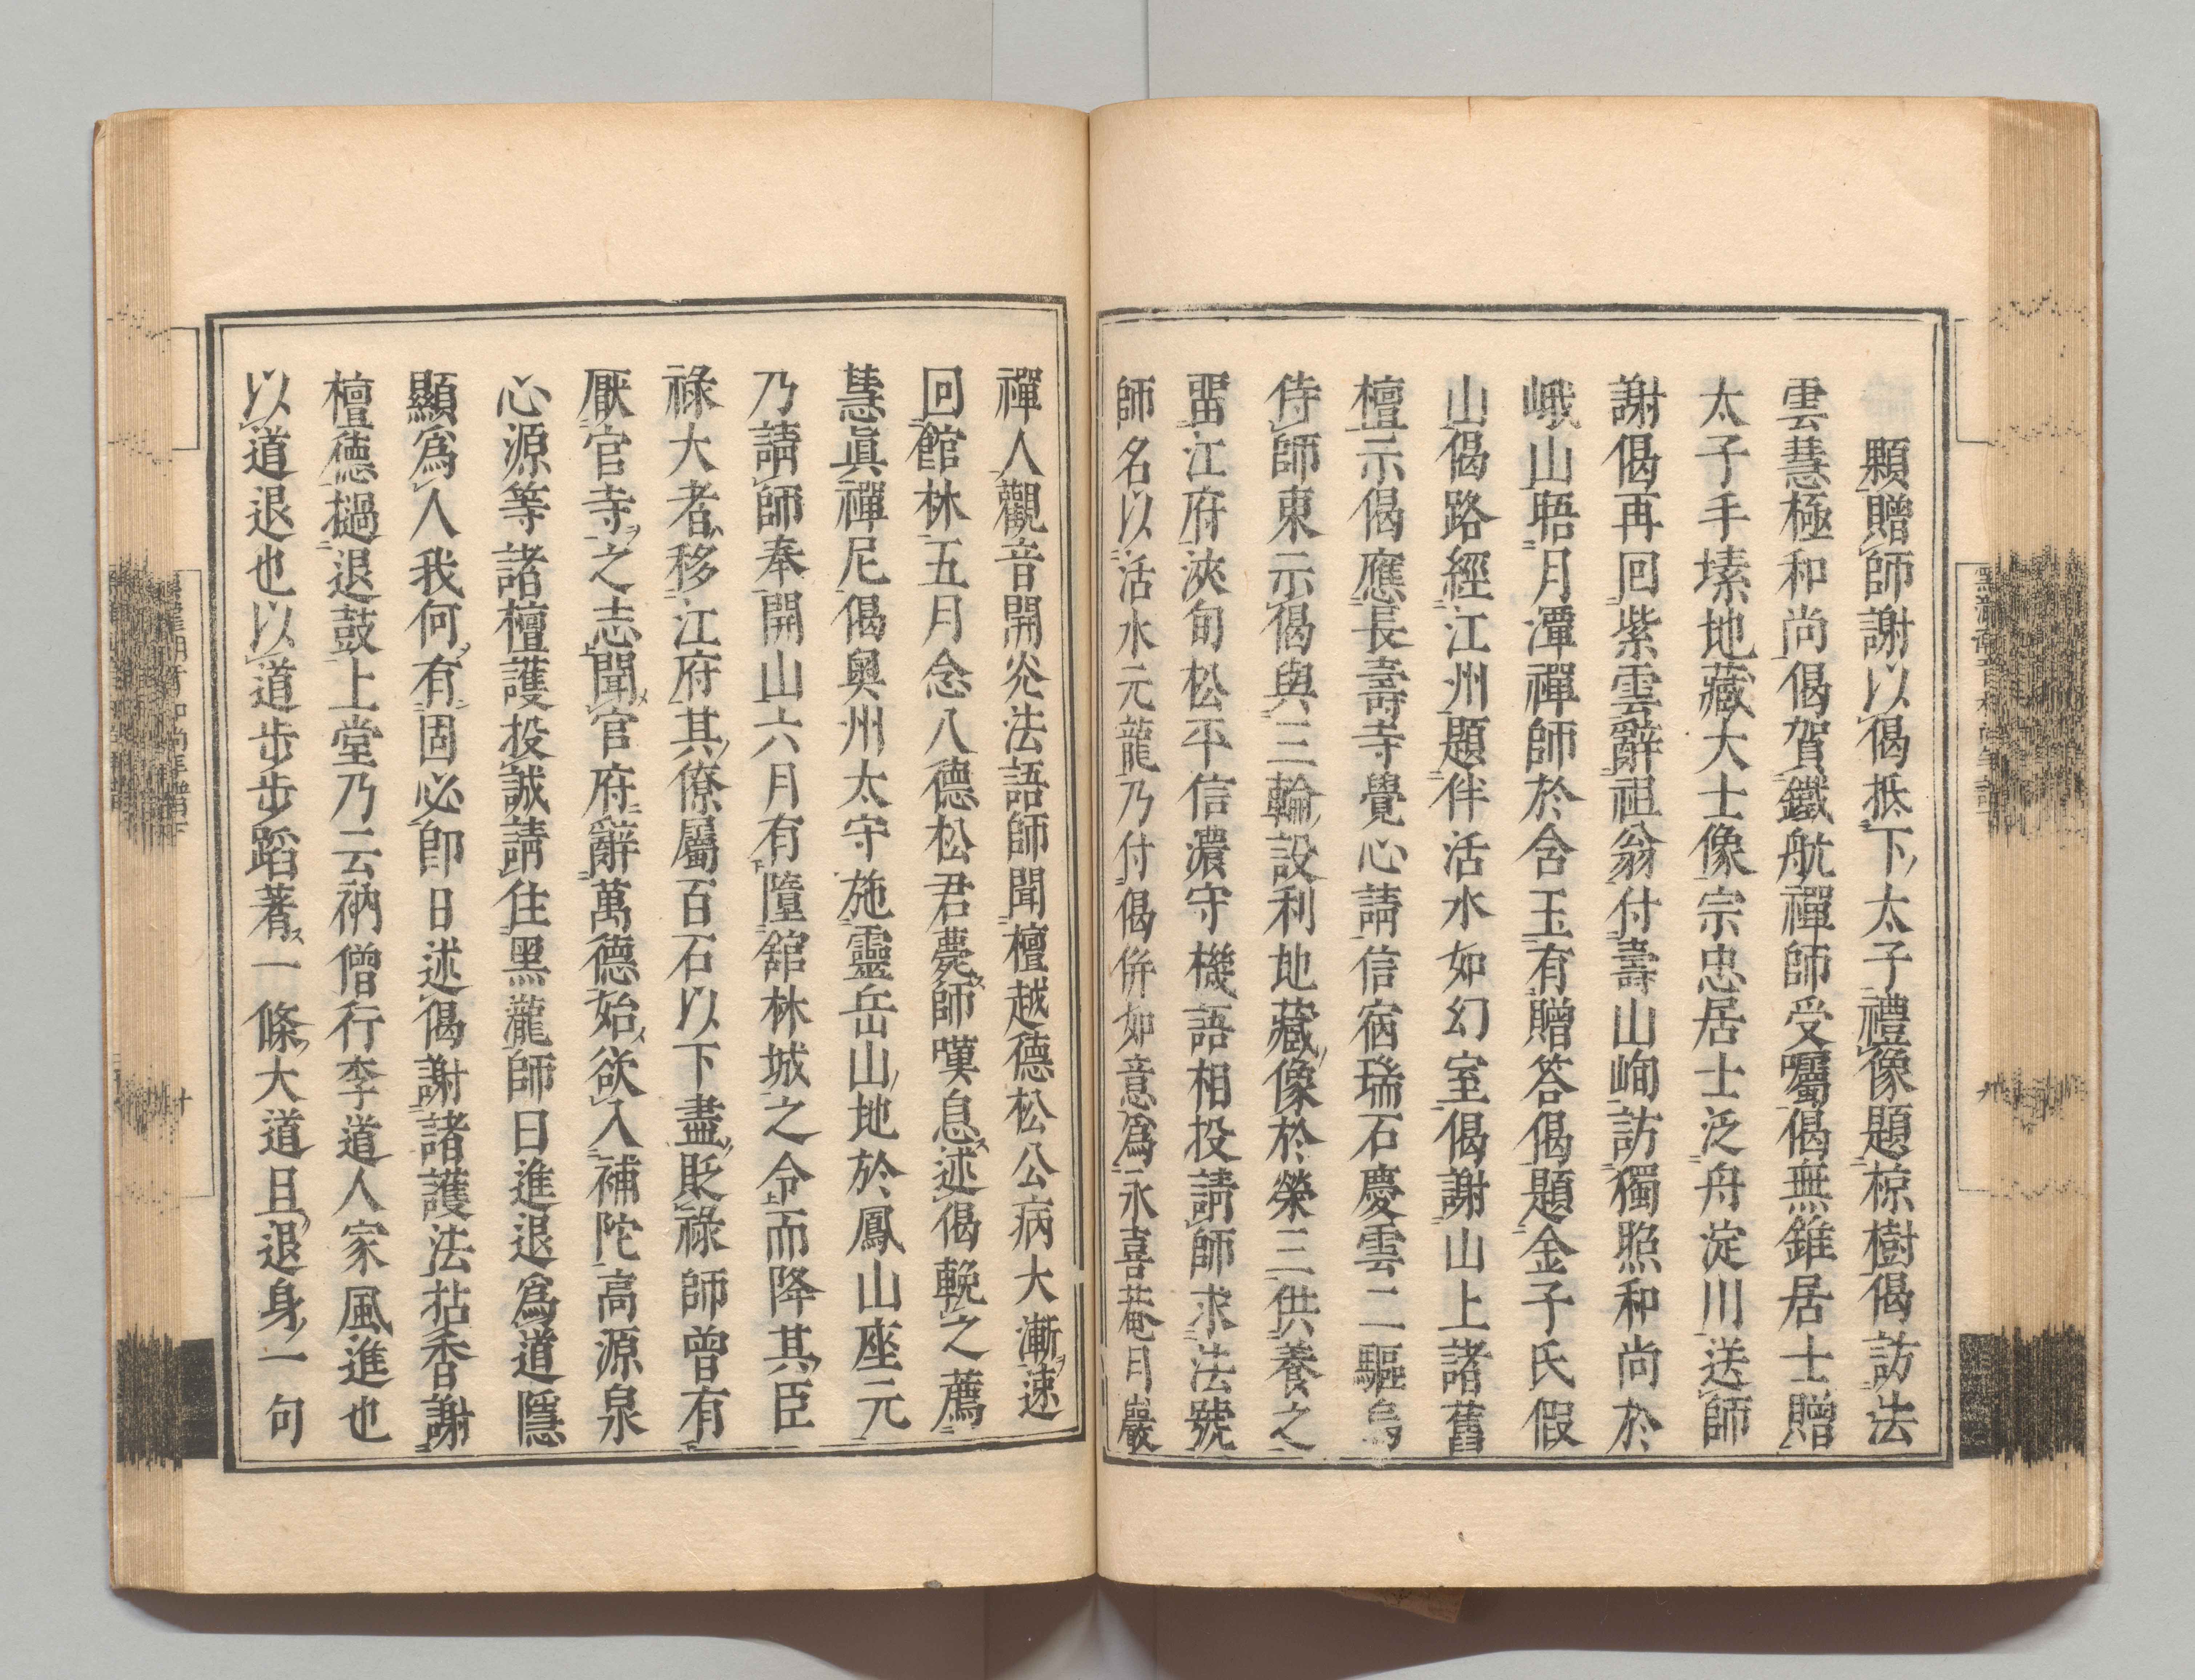 顆贈師謝以偈抵下太子禮像題椋樹偈訪法
雲慧極和尚偈賀鐵航禪師受囑偈無錐居士贈
太子手塐地藏大士像宗忠居士泛舟淀川送師
謝偈再回紫雲辭祖翁付壽山峋訪獨照和尚於
峨山晤月潭禪師於含玉有贈答偈題金子氏假
山偈路經江州題伴活水如幻室偈謝山上諸舊
檀示偈應長壽寺覺心請信宿瑞石慶雲二驅烏
侍師東示偈與三輪設利地藏像於榮三供養之
畱江府浹旬松平信濃守機語相投請師求法號
師名以活水元龍乃付偈併如意爲永喜菴月巖
禪人觀音開光法語師聞檀越德松公病大漸速
回館林五月念八德松君薨師嘆息述偈輓之薦
慧眞禪尼偈奧州太守施靈岳山地於鳳山座元
乃請師奉開山六月有墮舘林城之令而降其臣
祿大者移江府其僚屬百石以下盡貶祿師曾有
厭官寺之志聞官府辭萬德始欲入補陀高源泉
心源等諸檀護投誠請住黑瀧師曰進退爲道隱
顯爲人我何有固必卽日述偈謝諸護法拈香謝
檀德撾退鼓上堂乃云衲僧行李道人家風進也
以道退也以道步步蹈著一條大道且退身一句